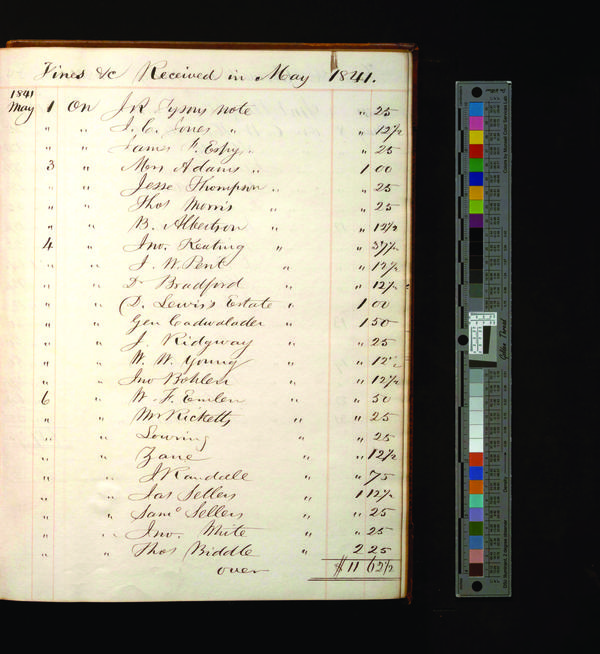 Fines &c Received in May 1841.
1841
May 1 On J R Tysons note " 25
" " J. C. Jones " " 12½
" " James P. Espy " " 25
3 " Mrs Adams " 1 00
" " Jesse Thompson " " 25
" " Thos Morris " " 25
" " B. Albertson " " 12½
4 " Jno. Keating " " 37½
" " J. W. Pent " " 12½
" " Dr Bradford " " 12½
" " D. Lewis's Estate " 1 00
" " Gen Cadwalader " 1 50
" " J. Ridgway " " 25
" " W. W. Young " " 12½
" " Jno Bohlen " " 12½
6 " W. F. Emlen " " 50
" " Mr Ricketts " " 25
" " Lowring " " 25
" " Zane " " 12½
" " J Randall " " 75
" " Jas Sellers " 1 12½
" " Saml Sellers " " 25
" " Jno. White " " 25
" " Thos Biddle " 2 25
over $11 62½